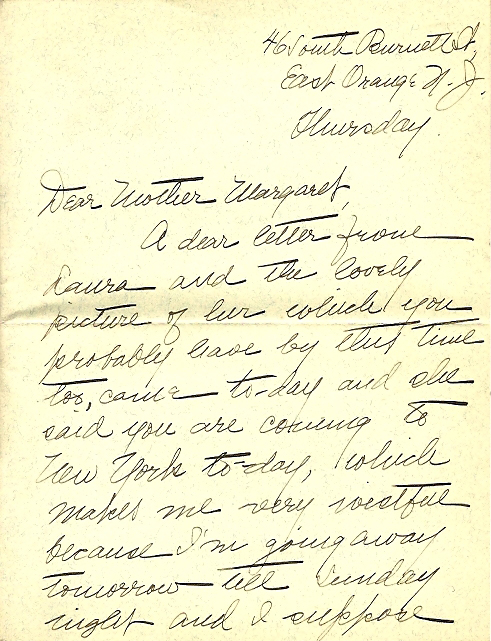 46 South Burnett St,
East Orange N. J.
Thursday.
Dear Mother Margaret,
A dear letter from
Laura and the lovely
picture of her which you
probably have by this time
too, came to-day and she
said you are coming to
New York to-day, which
makes me very wistful
because I'm going away
tomorrow till Sunday
night and I suppose